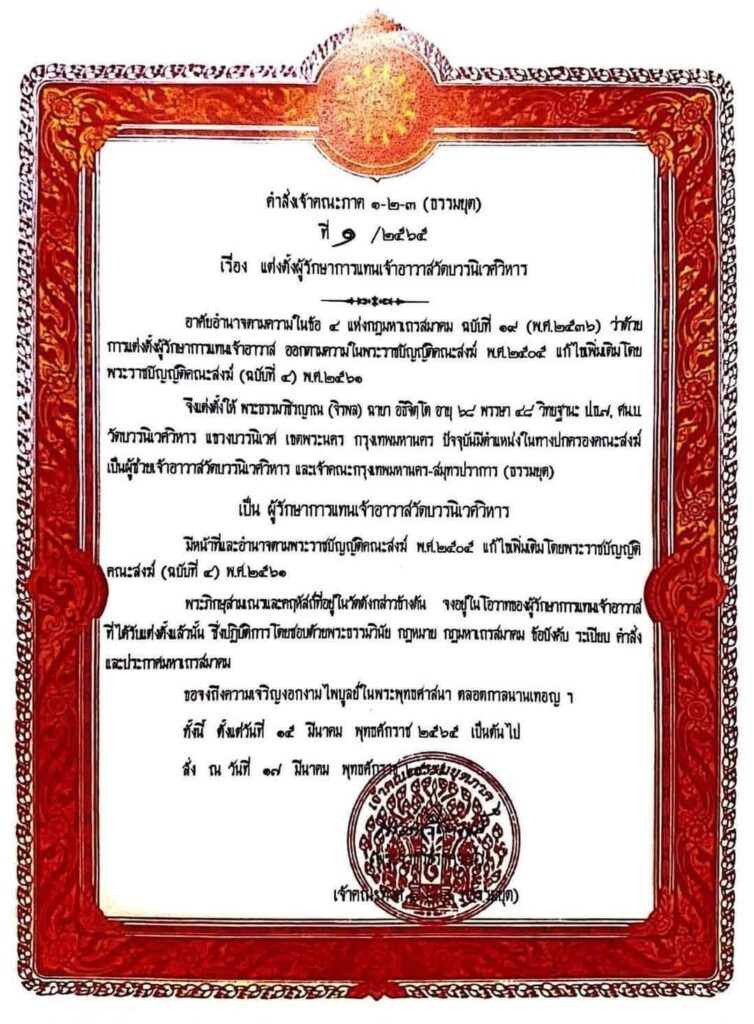 คำสั่งเจ้าคณะภาค ๑-๒-๓ (ธรรมยุต)
ที่ ๑ /๒๕๖๕
เรื่อง แต่งตั้งผู้รักษาการแทนเจ้าอาวาสวัดบวรนิเวศวิหาร
อาศัยอำนาจตามความในข้อ ๔ แห่งกฎมหาเถรสมาคม ฉบับที่ ๑๙ (พ.ศ.๒๕๓๖) ว่าด้วย
การแต่งตั้งผู้รักษาการแทนเจ้าอาวาส ออกตามความในพระราชบัญญัติคณะสงฆ์ พ.ศ.๒๕๐๕ แก้ไขเพิ่มเติมโดย
พระราชบัญญัติคณะสงฆ์ (ฉบับที่ ๔) พ.ศ.๒๕๖๑
จึงแต่งตั้งให้ พระธรรมวชิรญาณ (จิรพล) ฉายา อธิจิตฺโต อายุ ๖๘ พรรษา ๔๘ วิทยฐานะ ป.ธ.๗, ศน.บ.
วัดบวรนิเวศวิหาร แขวงบวรนิเวศ เขตพระนคร กรุงเทพมหานคร ปัจจุบันมีตำแหน่งในทางปกครองคณะสงฆ์
เป็นผู้ช่วยเจ้าอาวาสวัดบวรนิเวศวิหาร และเจ้าคณะกรุงเทพมหานคร-สมุทรปราการ (ธรรมยุต)
เป็น ผู้รักษาการแทนเจ้าอาวาสวัดบวรนิเวศวิหาร
มีหน้าที่และอำนาจตามพระราชบัญญัติคณะสงฆ์ พ.ศ.๒๕๐๕ แก้ไขเพิ่มเติมโดยพระราชบัญญัติ
คณะสงฆ์ (ฉบับที่ ๔) พ.ศ.๒๕๖๑
พระภิกษุสามเณรและคฤหัสถ์ที่อยู่ในวัดดังกล่าวข้างต้น จงอยู่ในโอวาทของผู้รักษาการแทนเจ้าอาวาส
ที่ได้รับแต่งตั้งแล้วนั้น ซึ่งปฏิบัติการโดยชอบด้วยพระธรรมวินัย กฎหมาย กฎมหาเถรสมาคม ข้อบังคับ ระเบียบ คำสั่ง
และประกาศมหาเถรสมาคม
ขอจงถึงความเจริญงอกงามไพบูลย์ในพระพุทธศาสนา ตลอดกาลนานเทอญ ฯ
ทั้งนี้ ตั้งแต่วันที่ ๑๕ มีนาคม พุทธศักราช ๒๕๖๕ เป็นต้นไป
สั่ง ณ วันที่ ๑๗ มีนาคม พุทธศักราช
เจ้าคณะภาค